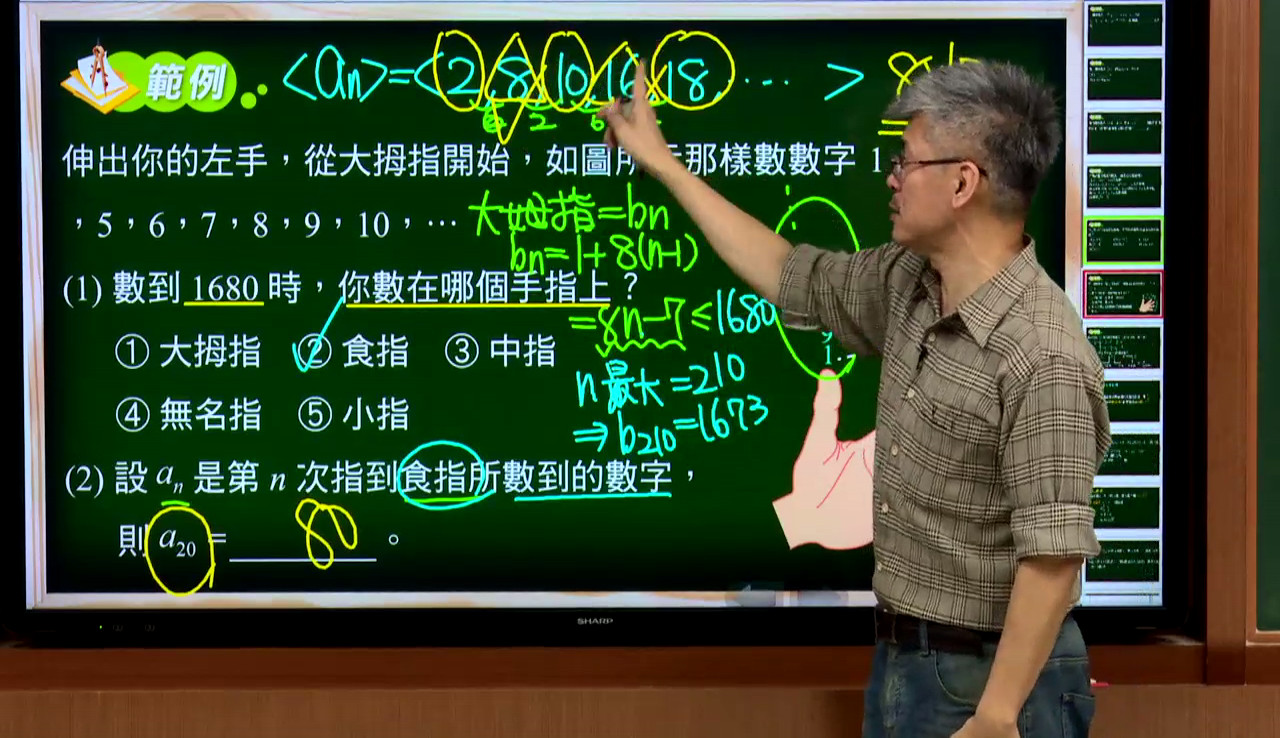 範例 <an>=<2,8,10,16,18,⋯>
6 2 6
伸出你的左手,從大拇指開始,如圖所示那樣數數字 1
,5,6,7,8,9,10,⋯ 大姆指=bn
bn=1+8(n-1)
(1) 數到 1680 時,你數在哪個手指上?
=8n-7≤1680
① 大拇指 ② 食指 ③ 中指
n最大=210
④ 無名指 ⑤ 小指
⇒b210=1673
(2) 設 an 是第 n 次指到食指所數到的數字,
則 a20 = 80 。
SHARP